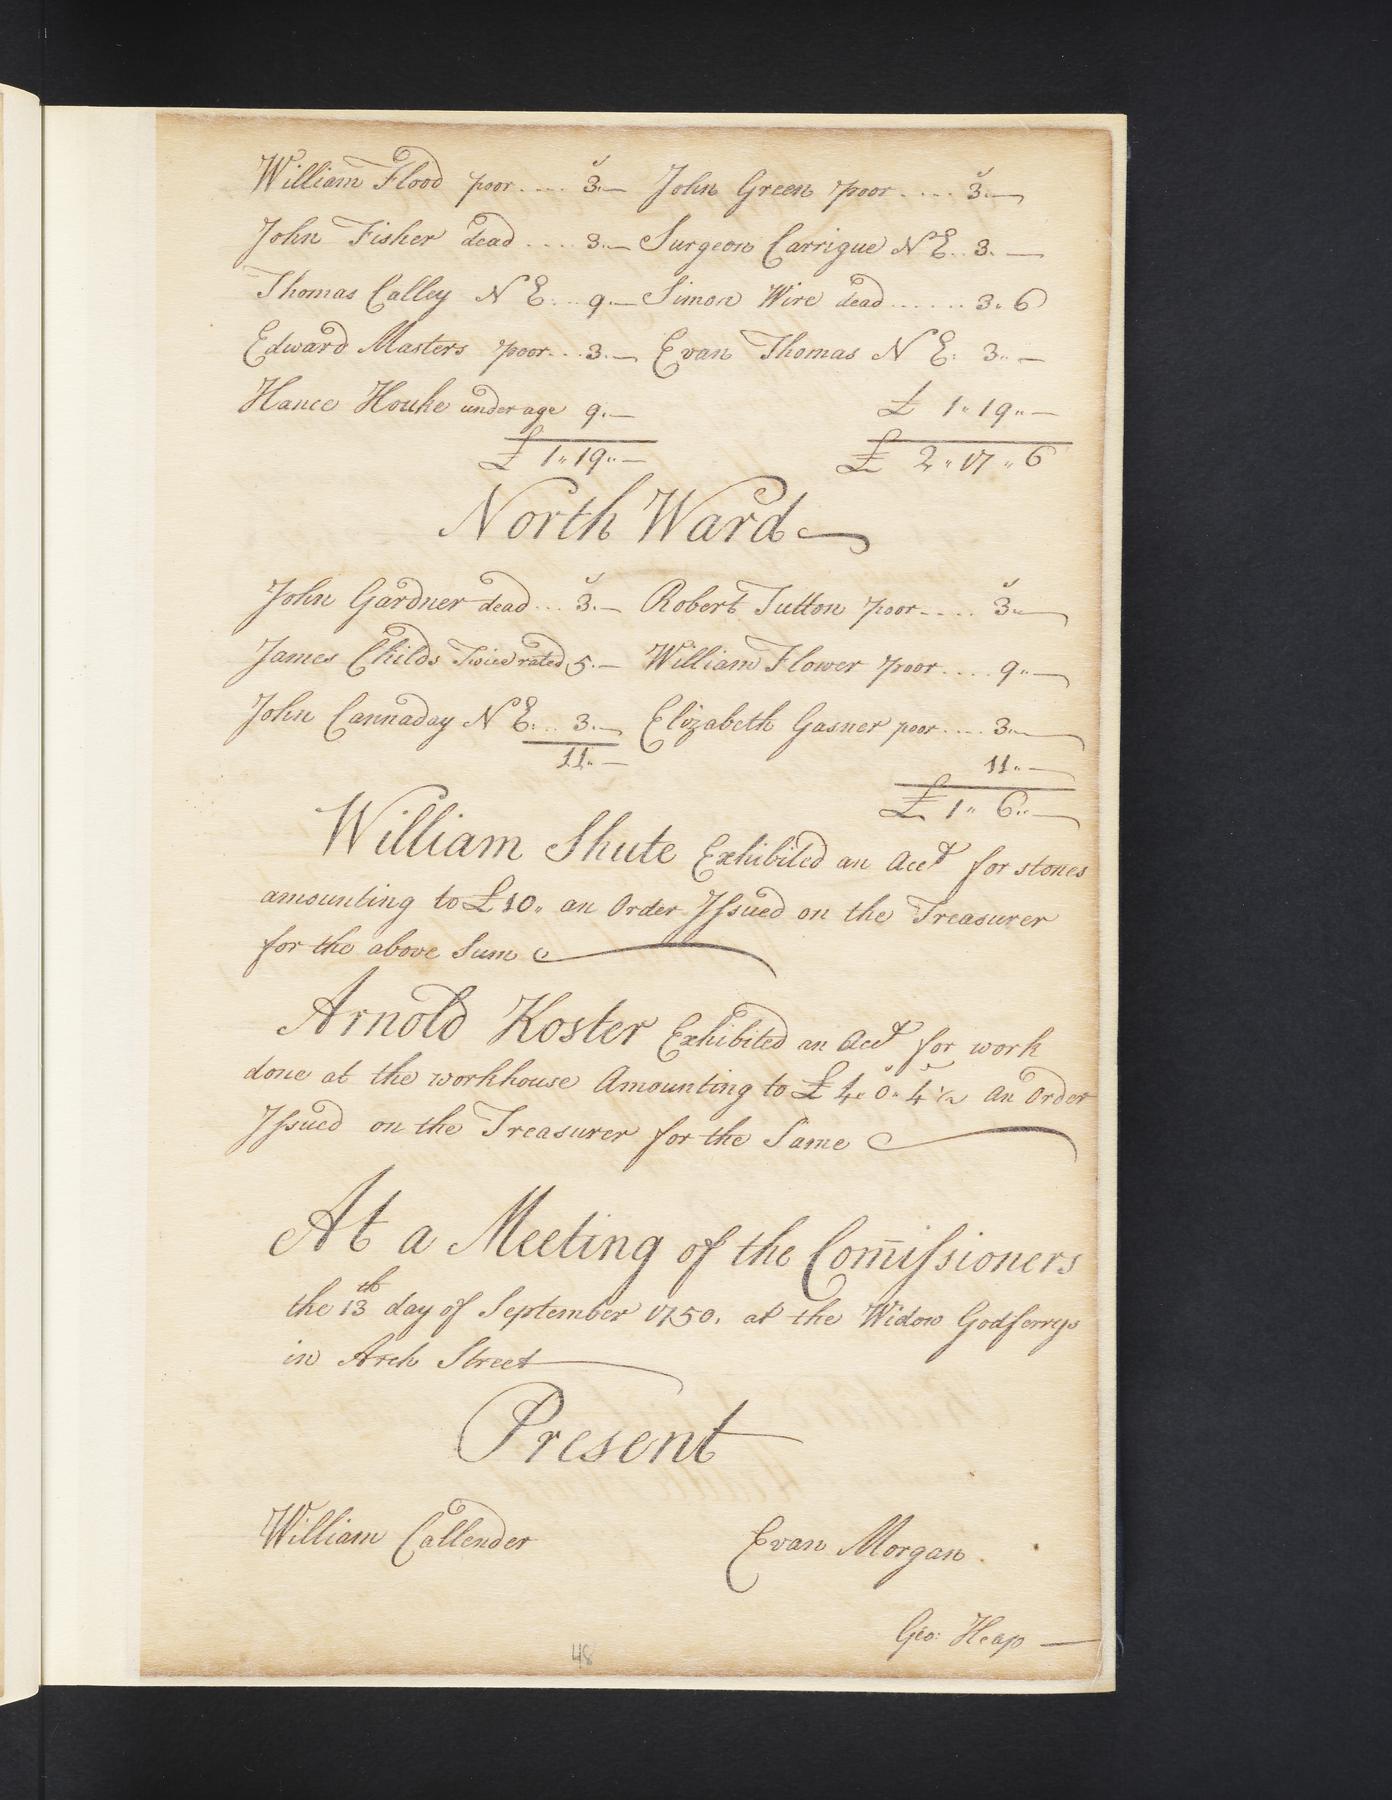 William Flood poor .... 3.— John Green poor .... 3.—
John Fisher dead .... 3.— Surgeon Carrigue N E.. 3. —
Thomas Calley N E... 9.— Simon Wire dead ...... 3.. 6
Edward Masters poor... 3.— Evan Thomas N E. 3.. —
Hance Houke under age 9.— £ 1.. 19.. —
£ 1.. 19.. — £ 2.. 17.. 6
North Ward
John Gardner dead ... 3.— Robert Tutton poor ..... 3..—
James Childs Twice rated 5.— William Flower poor .... 9..—
John Cannaday N E... 3.— Elizabeth Gasner poor .... 3..—
11.. — 11.. —
£ 1.. 6.. —
William Shute Exhibited an Acct for stones
amounting to £10.. an Order Issued on the Treasurer
for the above Sum
Arnold Koster Exhibited an Acct for work
done at the workhouse Amounting to £ 4.. 0.. 4 1/2 an Order
Issued on the Treasurer for the Same
At a Meeting of the Com̄issioners
the 13th day of September 1750. at the Widow Godferrys
in Arch Street
Present
William Callender Evan Morgan.
Geo: Heap —
48